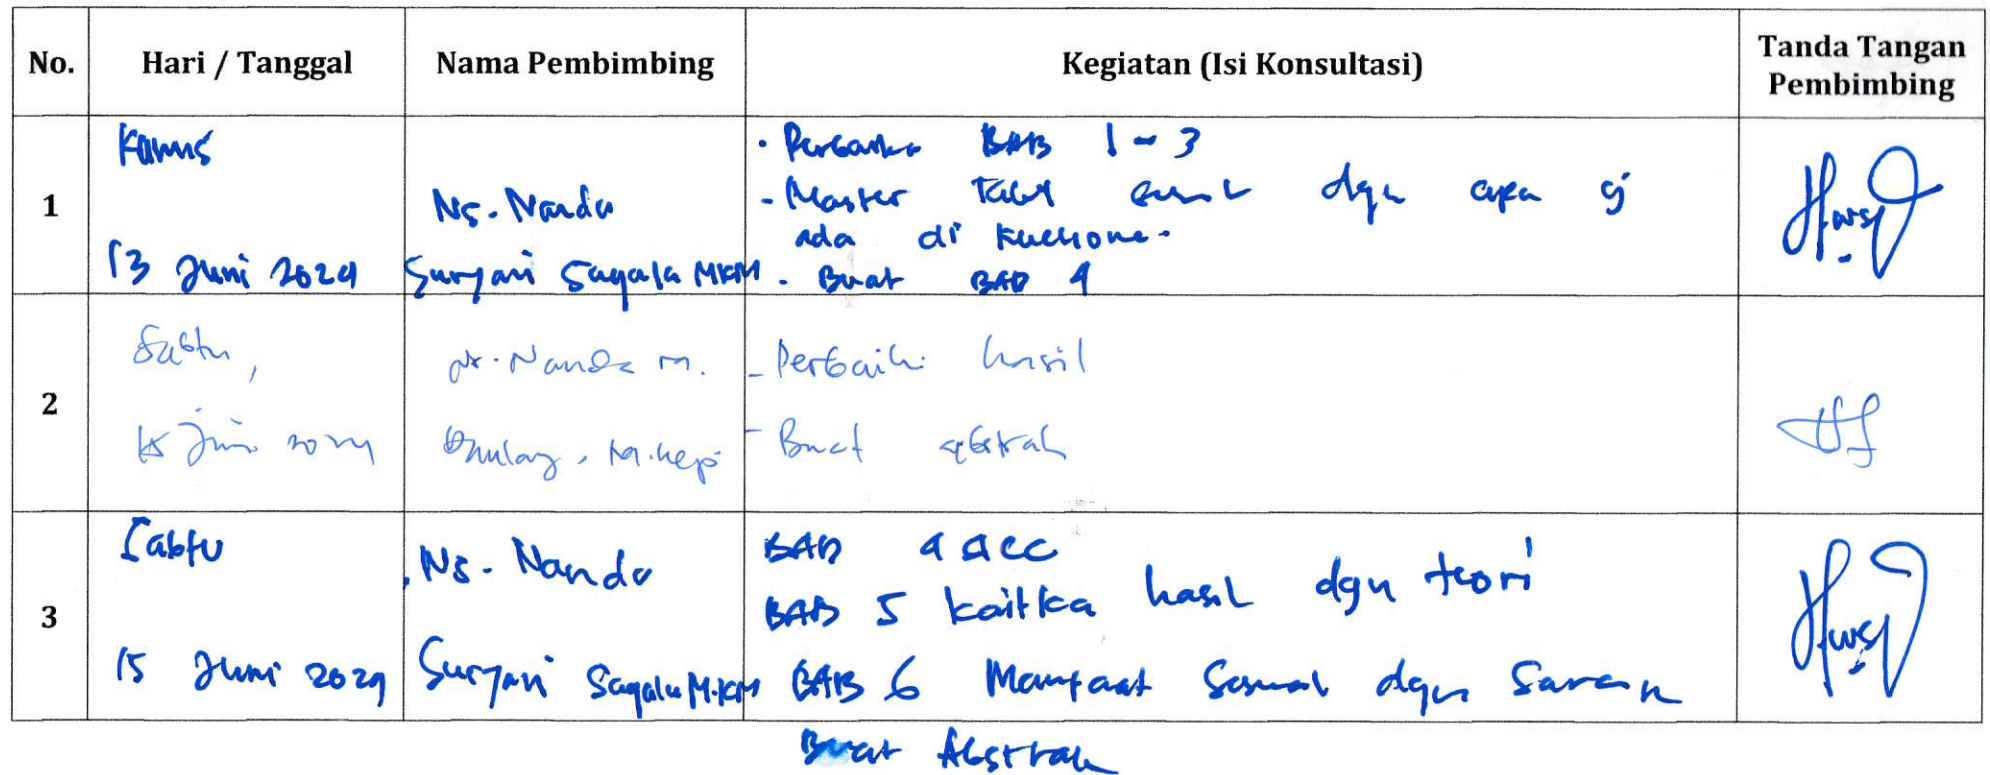 No. Hari / Tanggal Nama Pembimbing Kegiatan (Isi Konsultasi) Tanda Tangan Pembimbing
1
Kamis
13 Juni 2024
Ns. Nanda
Suryani Sagala MKM
- Perbaiki BAB 1 - 3
- Master Tabel dgn apa yg
ada di
- Buat BAB 4
2
Sabtu,
15 Juni 2024
Nanda M.
M.Kep
- Perbaiki hasil
- Buat abstrak
3
Sabtu
15 Juni 2024
Ns. Nanda
Suryani Sagala M.KM
BAB 4 acc
BAB 5 kaitka hasil dgn teori
BAB 6 Manfaat Sesuai dgn Saran
Buat Abstrak